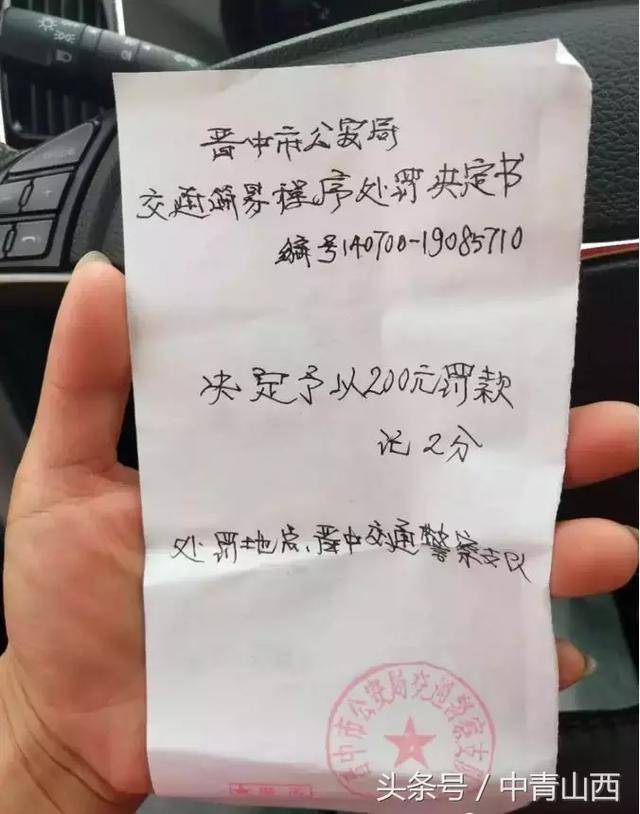 晋中市公安局
交通简易程序处罚决定书
编号140700-19085710
决定予以200元罚款
记2分
处罚地点、晋中交通警察支队
晋中市公安局交通警察支队
头条号 / 中青山西